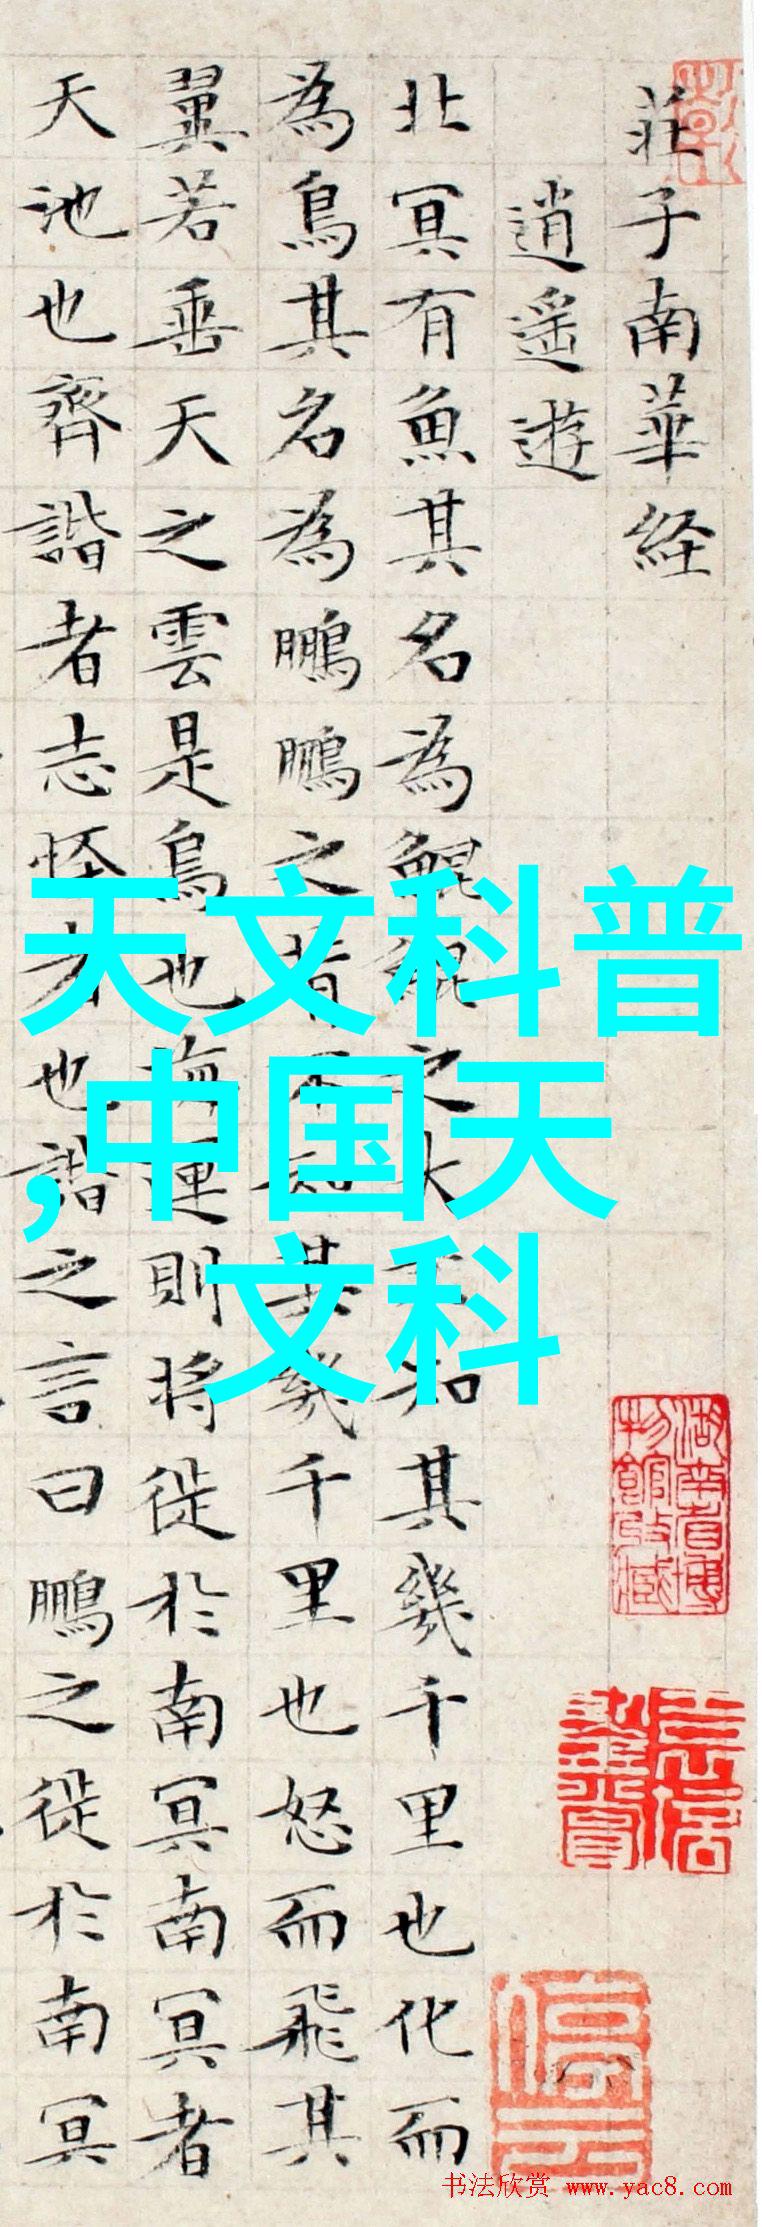 莊子南華経
逍遙遊
北冥有魚其名為鯤鯤之大不知其幾千里也化而
為鳥其名為鵬鵬之背不知其幾千里也怒而飛其
翼若垂天之雲是鳥也海運則将徙於南冥南冥者
天池也齊諧者志怪者也諧之言曰鵬之徙於南冥
天文科普
,中国天
文科
湖南省博
物館收藏
书法欣赏 www.yac8.com